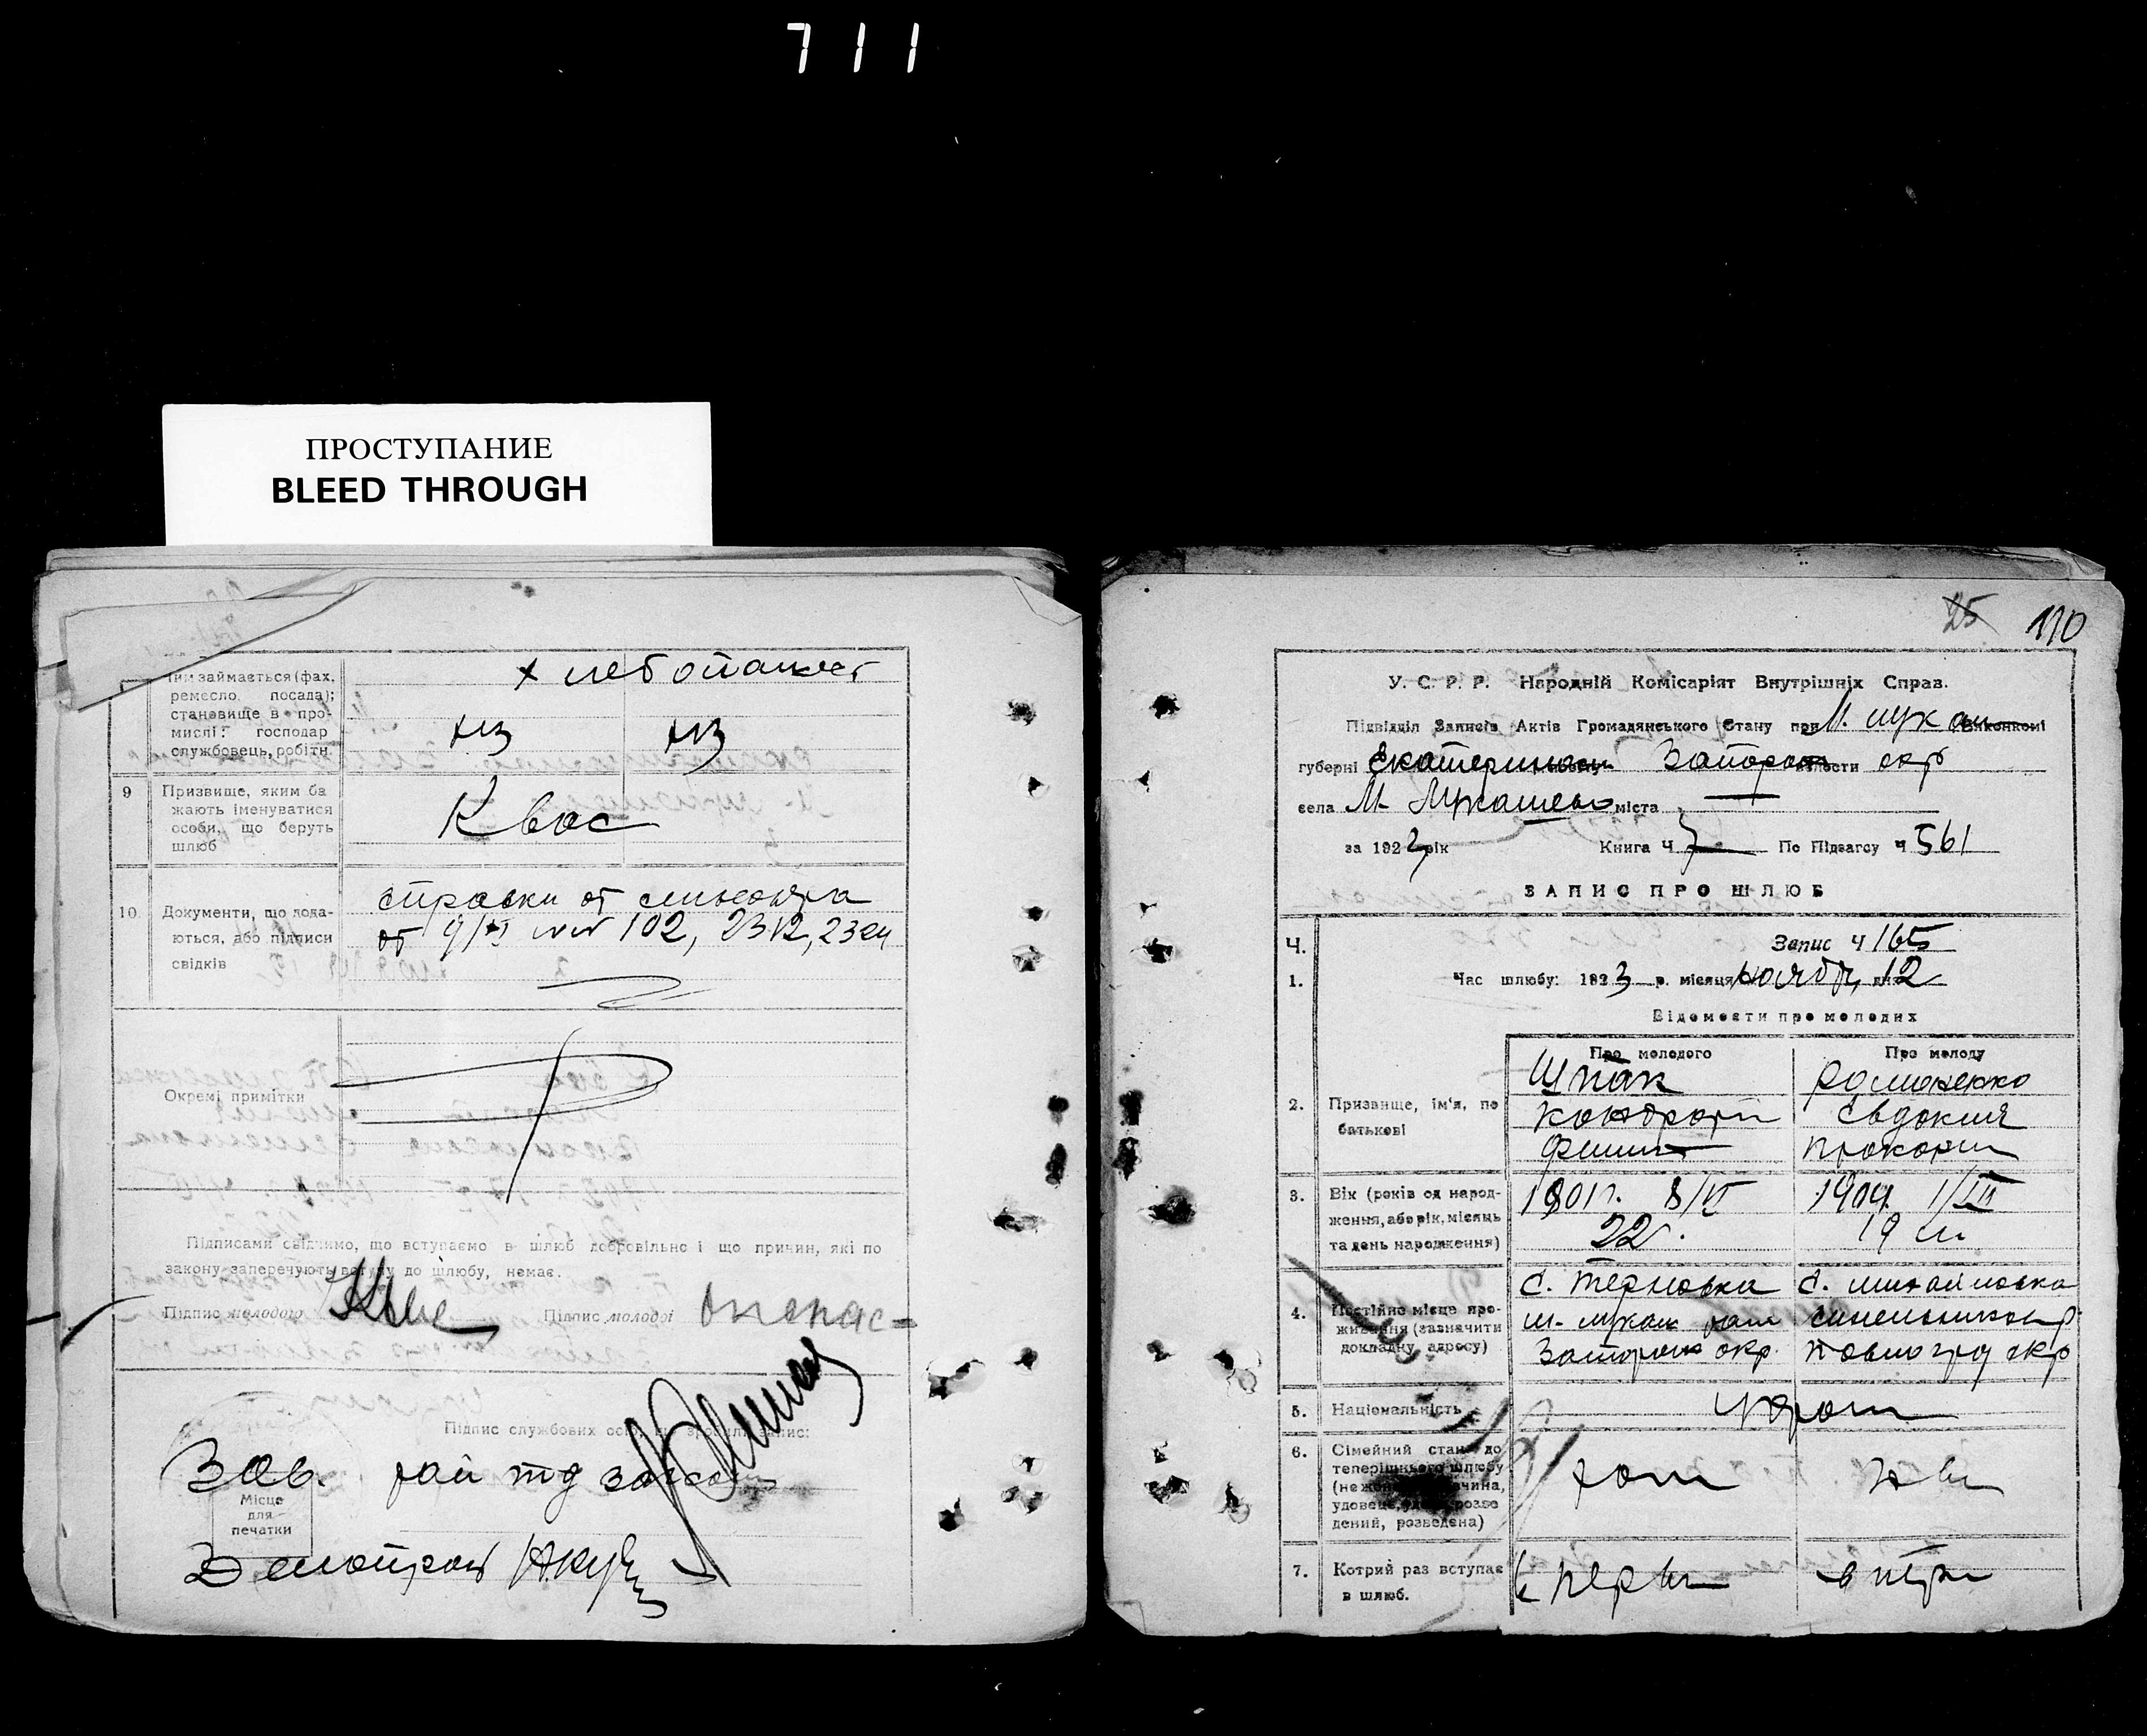 711
ПРОСТУПАНИЕ
BLEED THROUGH
Чим займається (фах,
ремесло, посада);
становище в про-
мислі: господар
службовець, робітн.
хлебопашест
9
Призвище, яким ба
жають іменуватися
особи, що беруть
шлюб
Квас
10.
Документи, що дода-
ються, або підписи
свідків
справки от
от 9/XI 102, 2312, 2324
Окремі примітки
Підписами свідчимо, що вступаємо в шлюб добровільно і що причин, які по
закону заперечують вступу до шлюбу, немає.
Підпис молодого
Підпис молодої Опанас=
Підпис службових осіб, що зробили запис:
Зав. рай
Місце
для
печатки
25 110
У. С. Р. Р. Народній Комісаріят Внутрішніх Справ.
Підвідділ Записів Актів Громадянського Стану при М. Лукаш Виконкомі
губерні Екатеринос Запорож окр
села М. Лукашево міста
за 1923 рік Книга Ч 7 По Підзагсу Ч 561
ЗАПИС ПРО ШЛЮБ
Ч.
Запис Ч 165
1.
Час шлюбу: 1923 р. місяця ноябр, дня 12
Відомости про молодих
Про молодого
Про молоду
2.
Призвище, ім'я, по
батькові
Шпак
Кондрат
Филип
Романенко
Евдокия
Прокофи
3.
Вік (років од народ-
ження, або рік, місяць
та день народження)
1901 г. 8/VI
22.
1904 1/III
19
4.
Постійне місце про-
живання (зазначити
докладну адресу)
с. Терновка
М. Лукаш рай
Запорож окр.
с. Михайловка
Синельников р
Павлоград окр
5.
Національність
украин
6.
Сімейний стан до
теперішнього шлюбу
(нежонатий, дівчина,
удовець, удова, розве
дений, розведена)
холи
7.
Котрий раз вступає
в шлюб.
первы